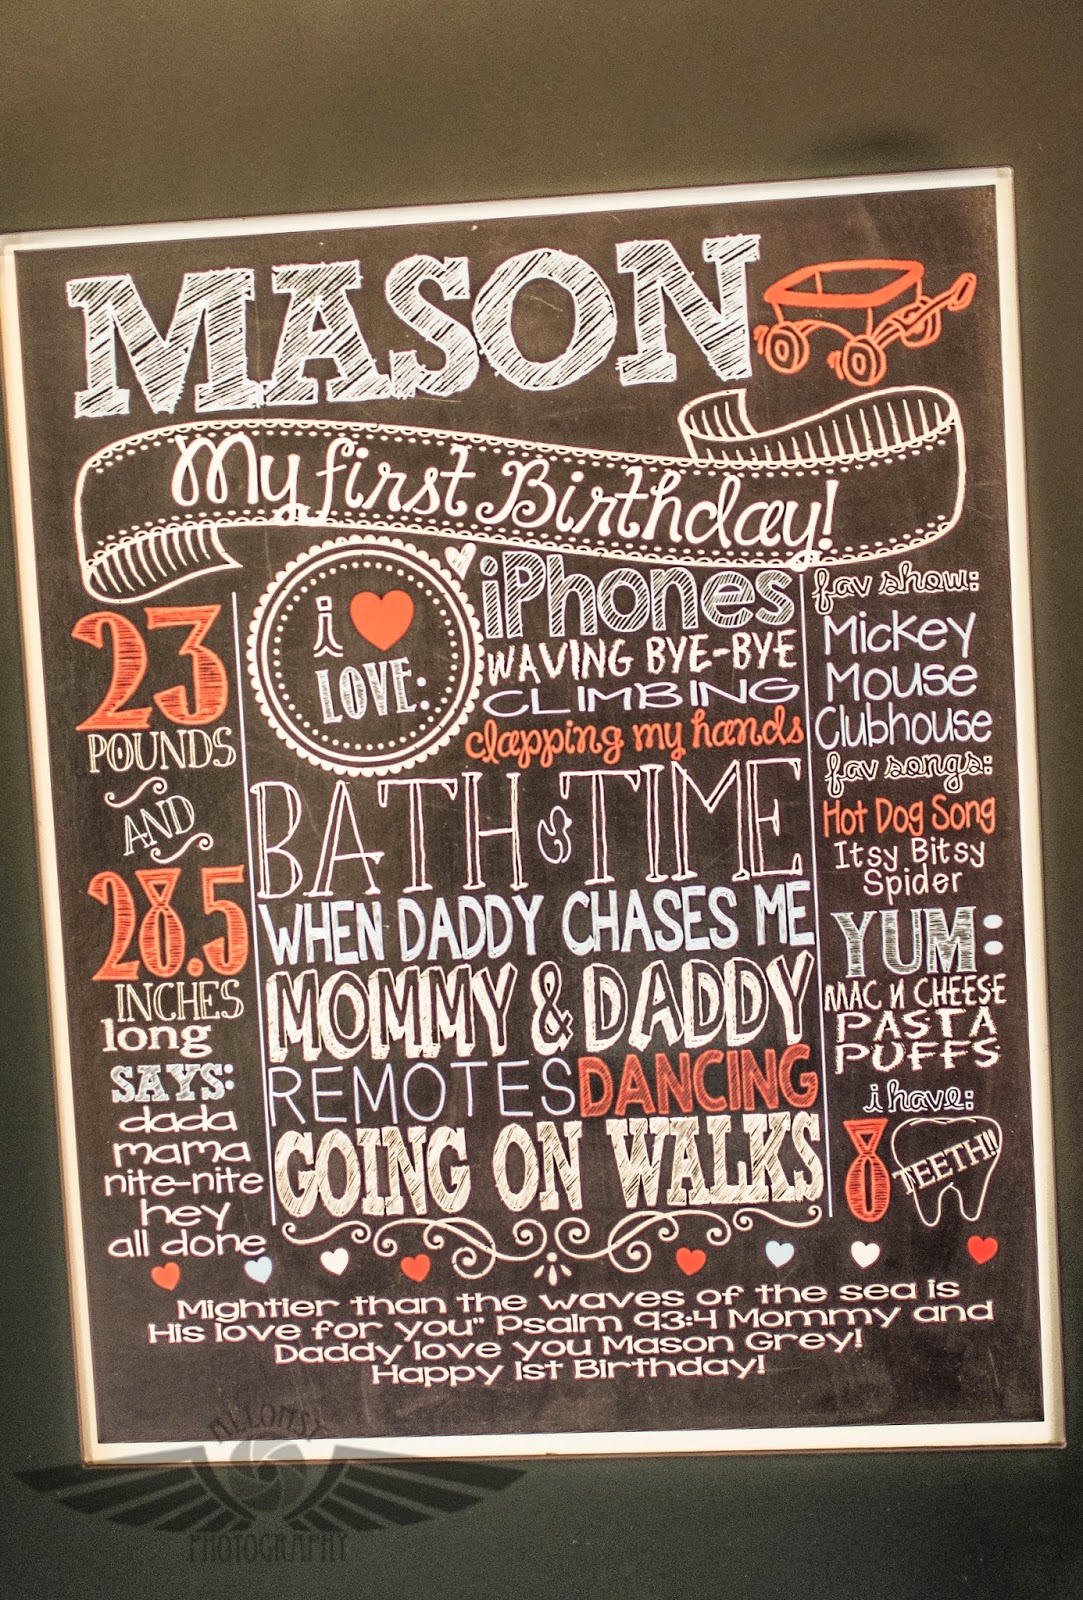 MASON
My first Birthday!
23
POUNDS
AND
28.5
INCHES
long
SAYS:
dada
mama
nite-nite
hey
all done
i ♥
LOVE:
iPhones
WAVING BYE-BYE
CLIMBING
clapping my hands
BATH TIME
WHEN DADDY CHASES ME
MOMMY & DADDY
REMOTES DANCING
GOING ON WALKS
fav show:
Mickey
Mouse
Clubhouse
fav songs:
Hot Dog Song
Itsy Bitsy
Spider
YUM:
MAC N CHEESE
PASTA
PUFFS
i have:
8 TEETH!!
Mightier than the waves of the sea is
His love for you" Psalm 93:4 Mommy and
Daddy love you Mason Grey!
Happy 1st Birthday!
PHOTOGRAPHY